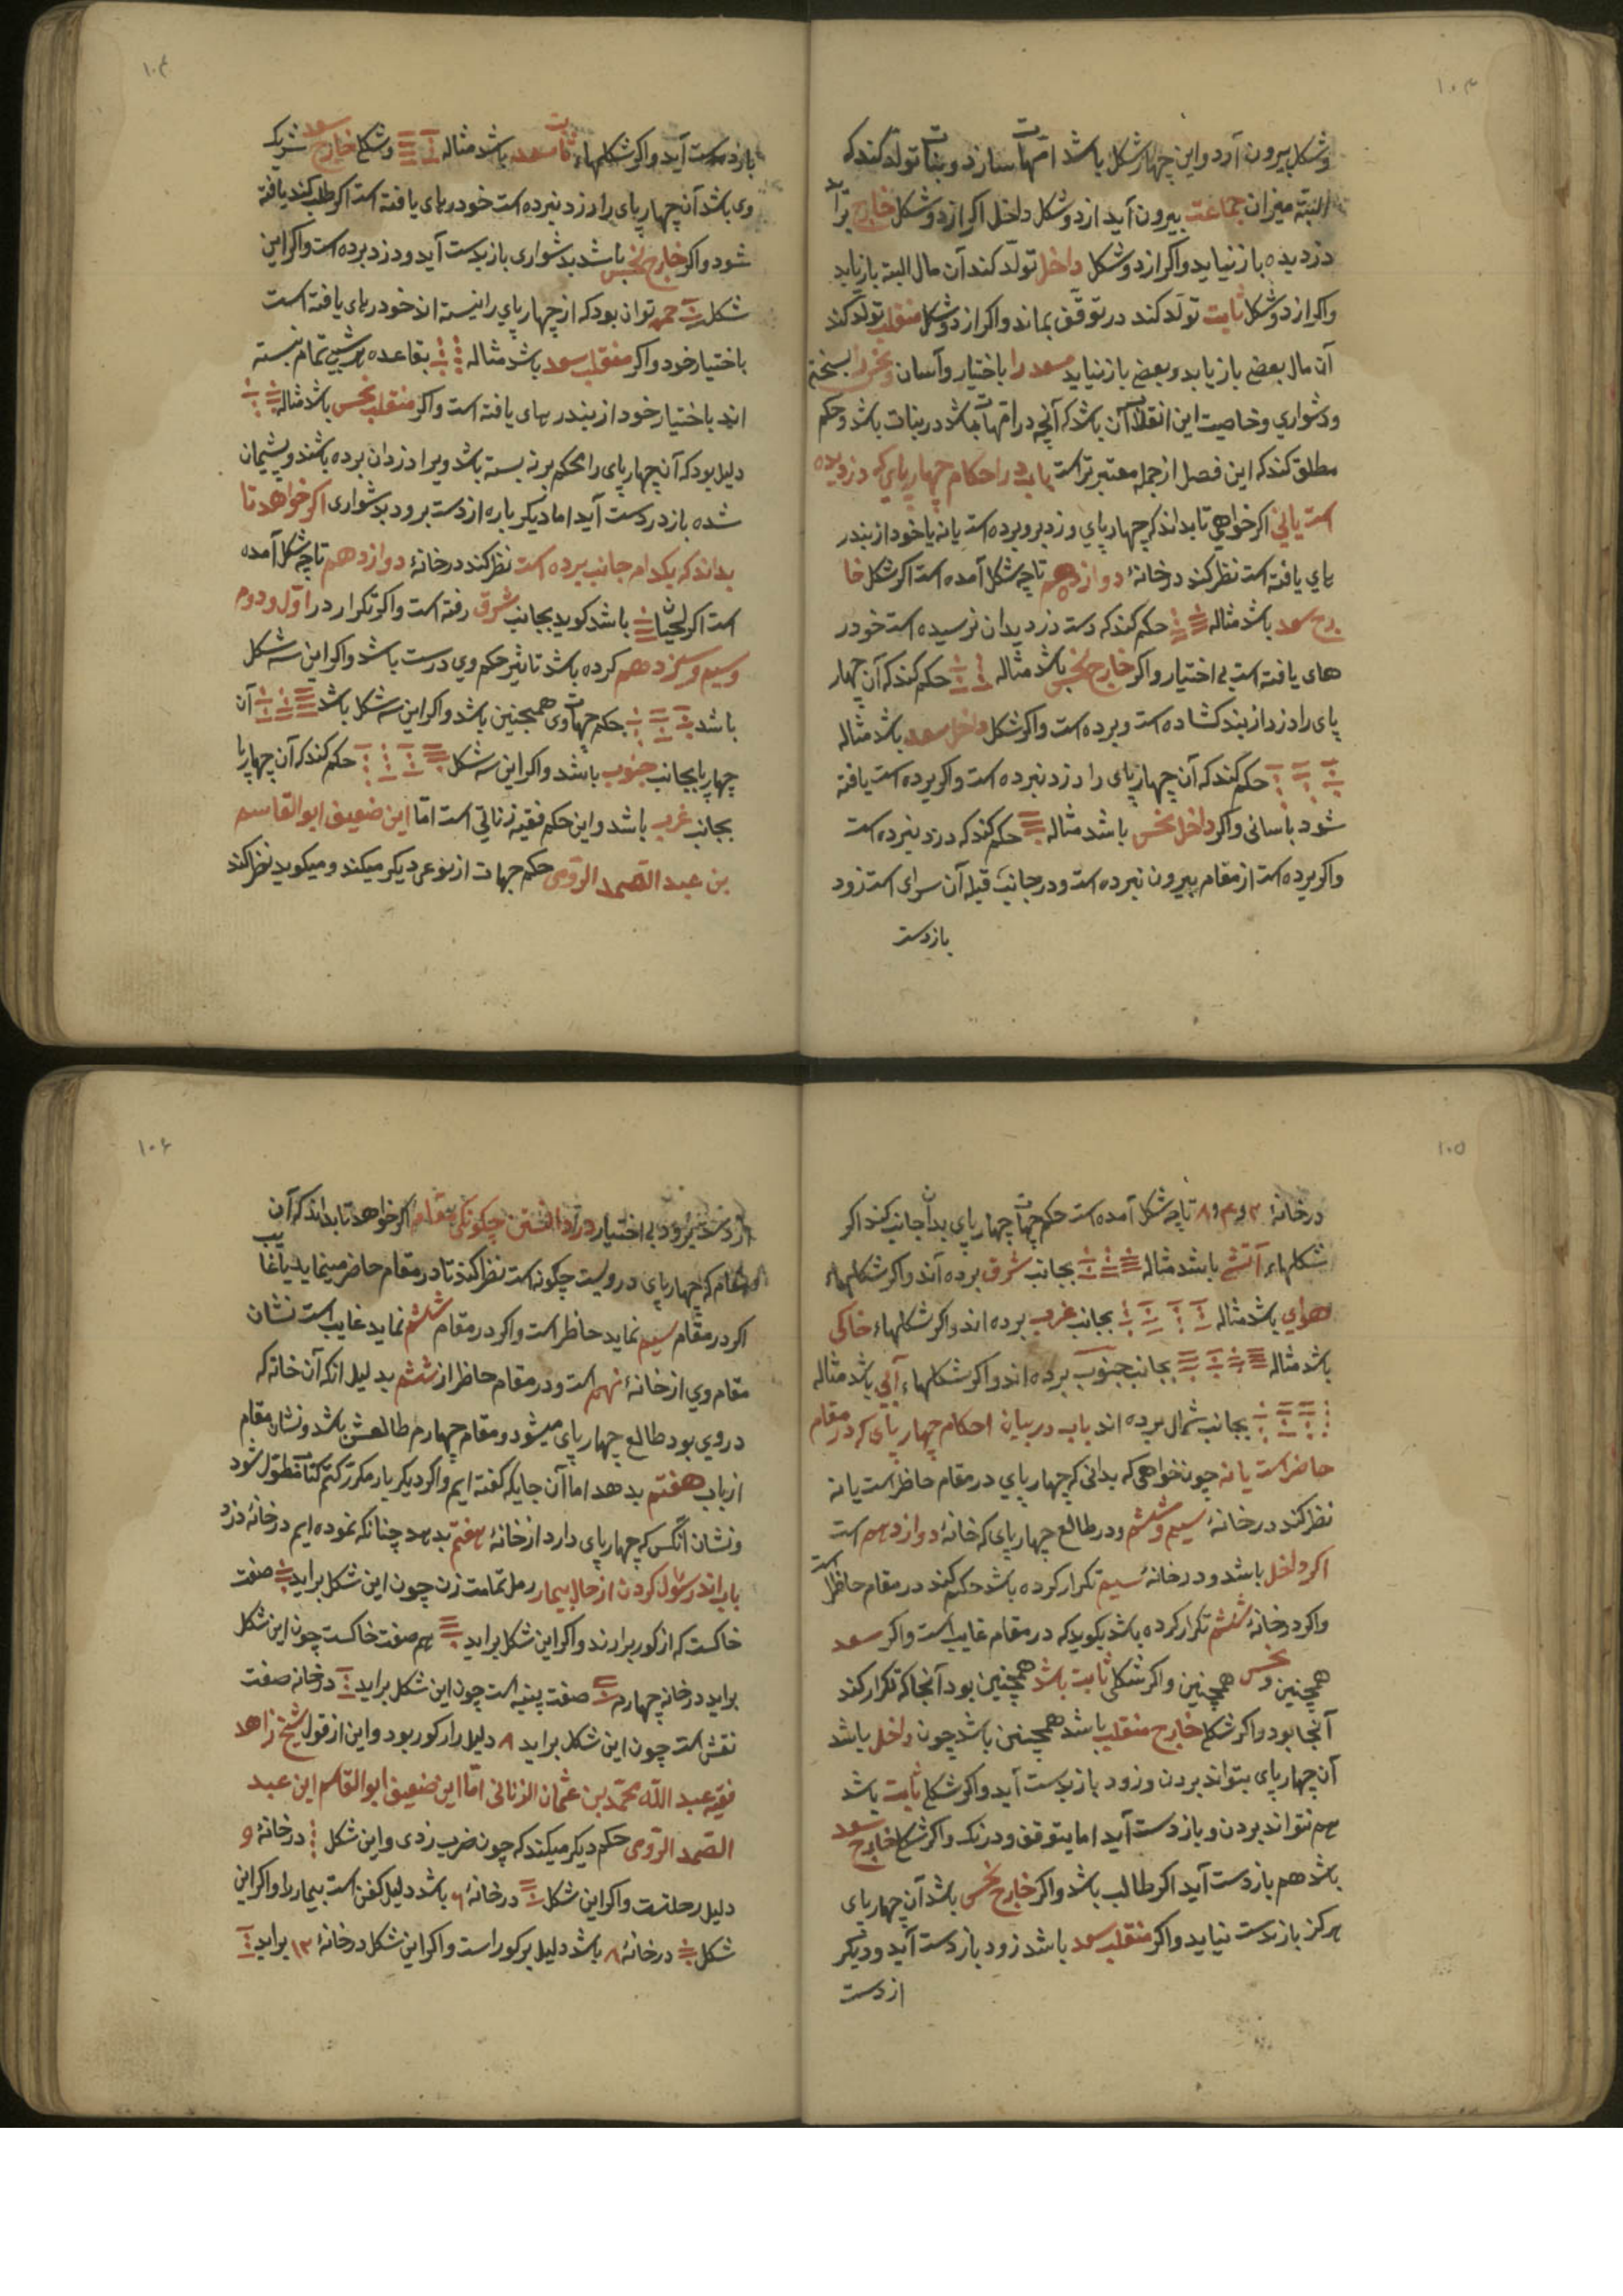 ۱۰۳
وشکل بیرون آرد واین چهار شکل باشد امهات سازد وبنات تولد کند که
البته میزان جماعت بیرون آید از دو شکل داخل اکر از دو شکل خارج برآید
دزدیده باز نیاید واکر از دو شکل داخل تولد کند آن مال البته باز یابد
واکر از دو شکل ثابت تولد کند در توقف بماند واکر از دو شکل منقلب تولد کند
آن مال بعضی باز یابد وبعضی باز نیابد سعد را باختیار وآسان ونحس را بسختی
ودشواری وخاصیت این انقلاب آن باشد که آنچه در امهات باشد در بنات باشد وحکم
مطلق کند که این فصل از جمله معتبرتر است باب در احکام چهارپای که دزد برده
است یا نی اکر خواهی تا بداند که چهارپای دزد برده است یا نه یا خود از بند در
پای یافته است نظر کند در خانهٔ دوازدهم تا چه شکل آمده است اکر شکل خا
رج سعد باشد مثاله حکم کند که دست دزد بدان نرسیده است خود در
های یافته است بی اختیار واکر خارج نحس باشد مثاله حکم کند که آن چهار
پای را دزد از بند کشاده است وبرده است واکر شکل داخل سعد باشد مثاله
حکم کند که آن چهارپای را دزد نبرده است واکر برده است یافته
شود بآسانی واکر داخل نحس باشد مثاله حکم کند که دزد نبرده است
واکر برده است از مقام بیرون نبرده است ودر جانب قبله آن سرای است زود
باز دست
۱۰۴
باز دست آید واکر شکلهاء ثابت سعد باشد مثاله وشکل خارج سعد شریک
وی باشد آن چهارپای را دزد نبرده است خود در پای یافته است اکر طلب کند یافته
شود واکر خارج نحس باشد بدشواری باز بدست آید ودزد برده است واکر این
شکل حمره توان بود که از چهارپای را نبسته اند خود در پای یافته است
باختیار خود واکر منقلب سعد باشد مثاله بقاعده بر شبی تمام نبسته
اند باختیار خود از بند در پای یافته است واکر منقلب نحس باشد مثاله
دلیل بود که آن چهارپای را محکم بر نه بسته باشد ویرا دزدان برده باشند وپشیمان
شده باز در دست آید اما دیکر باره از دست برود بدشواری اکر خواهد تا
بداند که بکدام جانب برده است نظر کند در خانهٔ دوازدهم تا چه شکل آمده
است اکر لحیان باشد کوید بجانب شرق رفته است واکر تکرار در اول ودوم
وسیم وسیزدهم کرده باشد تاثیر حکم وی درست باشد واکر این سه شکل
باشد حکم جهات وی همچنین باشد واکر این سه شکل باشد آن
چهارپا بجانب جنوب باشد واکر این سه شکل حکم کند که آن چهارپا
بجانب غرب باشد واین حکم فقیه زناتی است اما این ضعیف ابو القاسم
بن عبد الصمد الرومی حکم جهات از نوعی دیکر میکند ومیکوید نظر کند
۱۰۵
در خانهٔ ۲ و ۴ و ۸ تا چه شکل آمده است حکم جهات چهارپای بدان جانب کند اکر
شکلهاء آتشی باشد مثاله بجانب شرق برده اند واکر شکلهاء
هوای باشد مثاله بجانب غرب برده اند واکر شکلهاء خاکی
باشد مثاله بجانب جنوب برده اند واکر شکلهاء آبی باشد مثاله
بجانب شمال برده اند باب در بیان احکام چهارپای که در مقام
حاضر است یا نه چون خواهی که بدانی که چهارپای در مقام حاظر است یا نه
نظر کند در خانهٔ سیم وششم ودر طالع چهارپای که خانهٔ دوازدهم است
اکر داخل باشد ودر خانهٔ سیم تکرار کرده باشد حکم کند در مقام حاظر است
واکر در خانهٔ ششم تکرار کرده باشد بکوید که در مقام غایب است واکر سعد
همچنین ونحس همچنین واکر شکل ثابت باشد همچنین بود آنجا که تکرار کند
آنجا بود واکر شکل خارج منقلب باشد همچنین باشد چون داخل باشد
آن چهارپای بتواند بردن وزود باز بدست آید واکر شکل ثابت باشد
هم نتواند بردن وباز دست آید اما بتوقف ودرنک واکر شکل خارج سعد
باشد هم باز دست آید اکر طالب باشد واکر خارج نحس باشد آن چهارپای
هرکز باز بدست نیاید واکر منقلب سعد باشد زود باز دست آید ودیکر
از دست
۱۰۶
از دست برود بی اختیار در دانستن چکونکی مقام اکر خواهد تا بداند که آن
مقام که چهارپای دروست چکونه است نظر کند تا در مقام حاضر مینماید یا غایب
اکر در مقام سیم نماید حاظر است واکر در مقام ششم نماید غایب است نشان
مقام وی از خانهٔ نهم است ودر مقام حاظر از ششم بدلیل انکه آن خانه که
در وی بود طالع چهارپای میشود ومقام چهارم طالعش باشد ونشان مقام
از باب هفتم بدهد اما آن جایکه کفته ایم واکر دیکر بار مکرر کنم کتاب مطول شود
ونشان آنکس که چهارپای دارد از خانهٔ هفتم بدهد چنانکه نموده ایم در خانهٔ دزد
باب اندر سؤال کردن از حال بیمار رمل تمامت زن چون این شکل براید صفت
خاکست که از کور برارند واکر این شکل براید هم صفت خاکست چون این شکل
براید در خانه چهارم صفت پنبه است چون این شکل براید در خانه صفت
نقش است چون این شکل براید ۸ دلیل را ر کور بود واین از قول شیخ زاهد
فقیه عبد الله محمد بن عثمان الزناتی اما این ضعیف ابو القاسم ابن عبد
الصمد الرومی حکم دیکر میکند که چون ضرب زدی واین شکل در خانهٔ و
دلیل رحلتست واکر این شکل در خانهٔ ۶ باشد دلیل کفن است بیمار را واکر این
شکل در خانهٔ ۸ باشد دلیل بر کور است واکر این شکل در خانهٔ ۱۲ براید